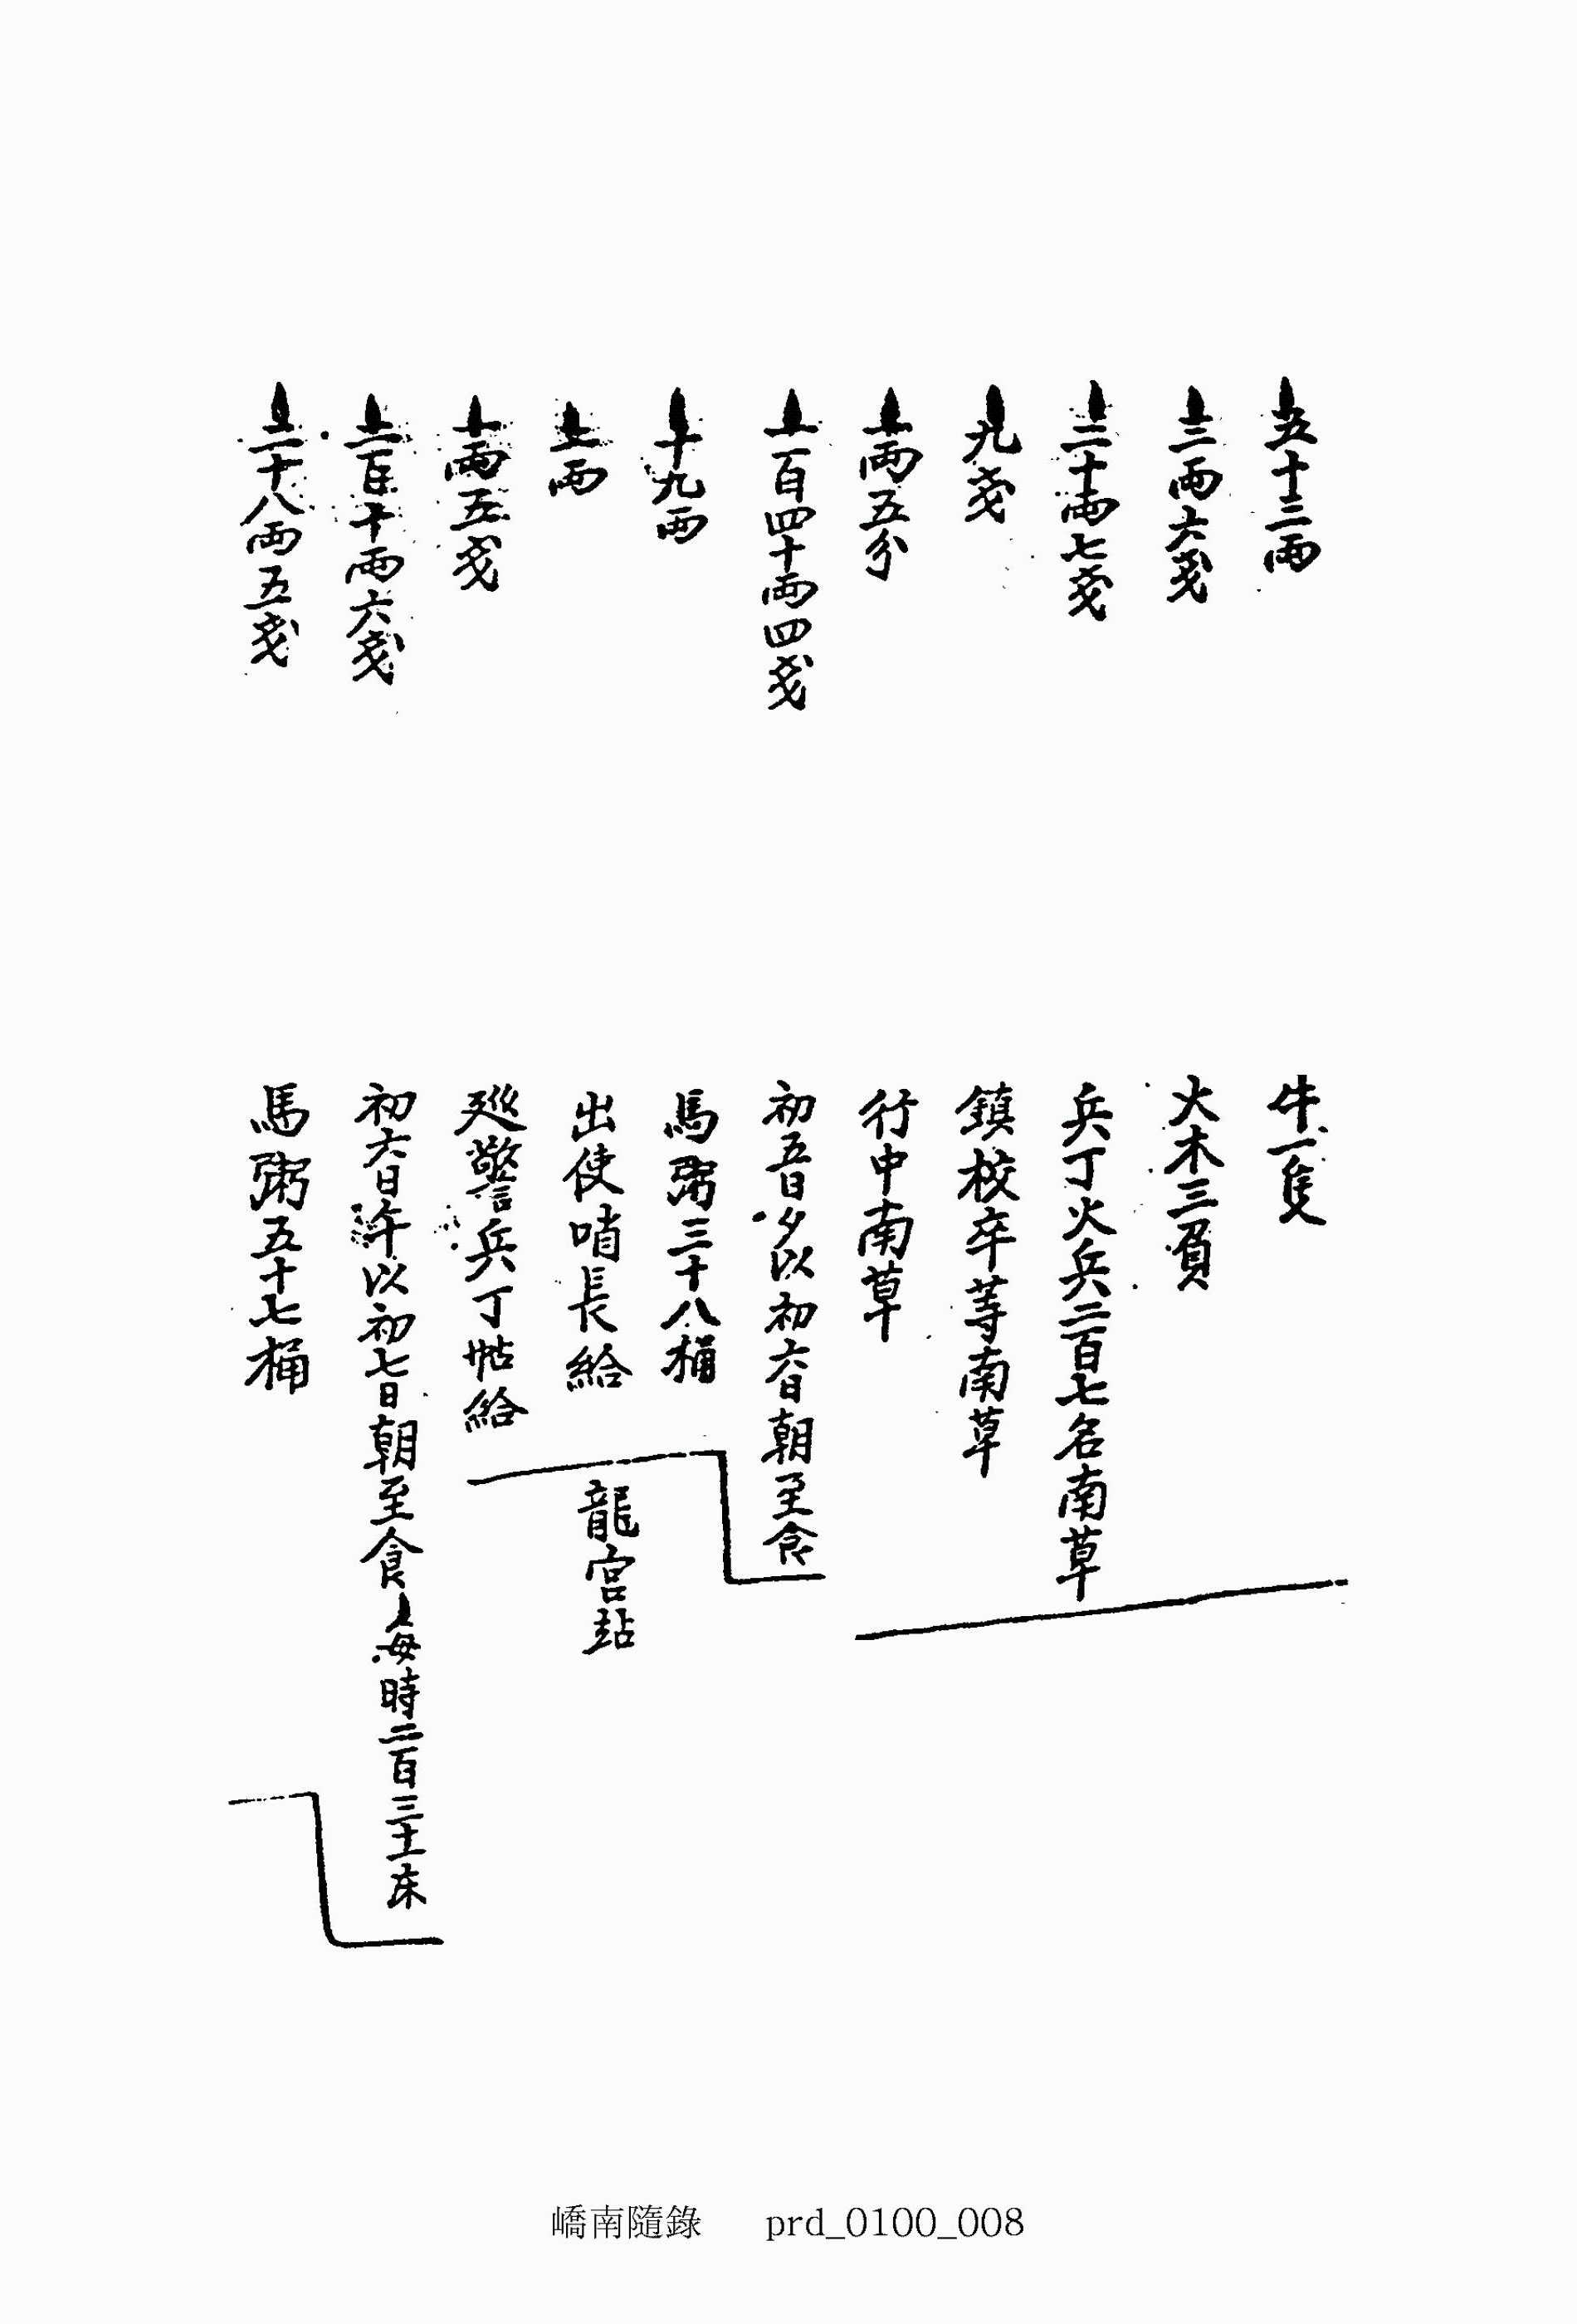 五十三両 牛一隻
三両六戔 火木三負
三十両七戔 兵丁火兵二百七名南草
九戔 鎮校卒等南草
一両五分 行中南草
一百四十両四戔 初五日夕以初六日朝至食
十九両 馬粥三十八桶
一両 出使哨長給
龍宮站
一両五戔 巡警兵丁帖給
二百十両六戔 初六日午以初七日朝至食 每時二百三十床
二十八両五戔 馬粥五十七桶
嶠南隨錄 prd_0100_008